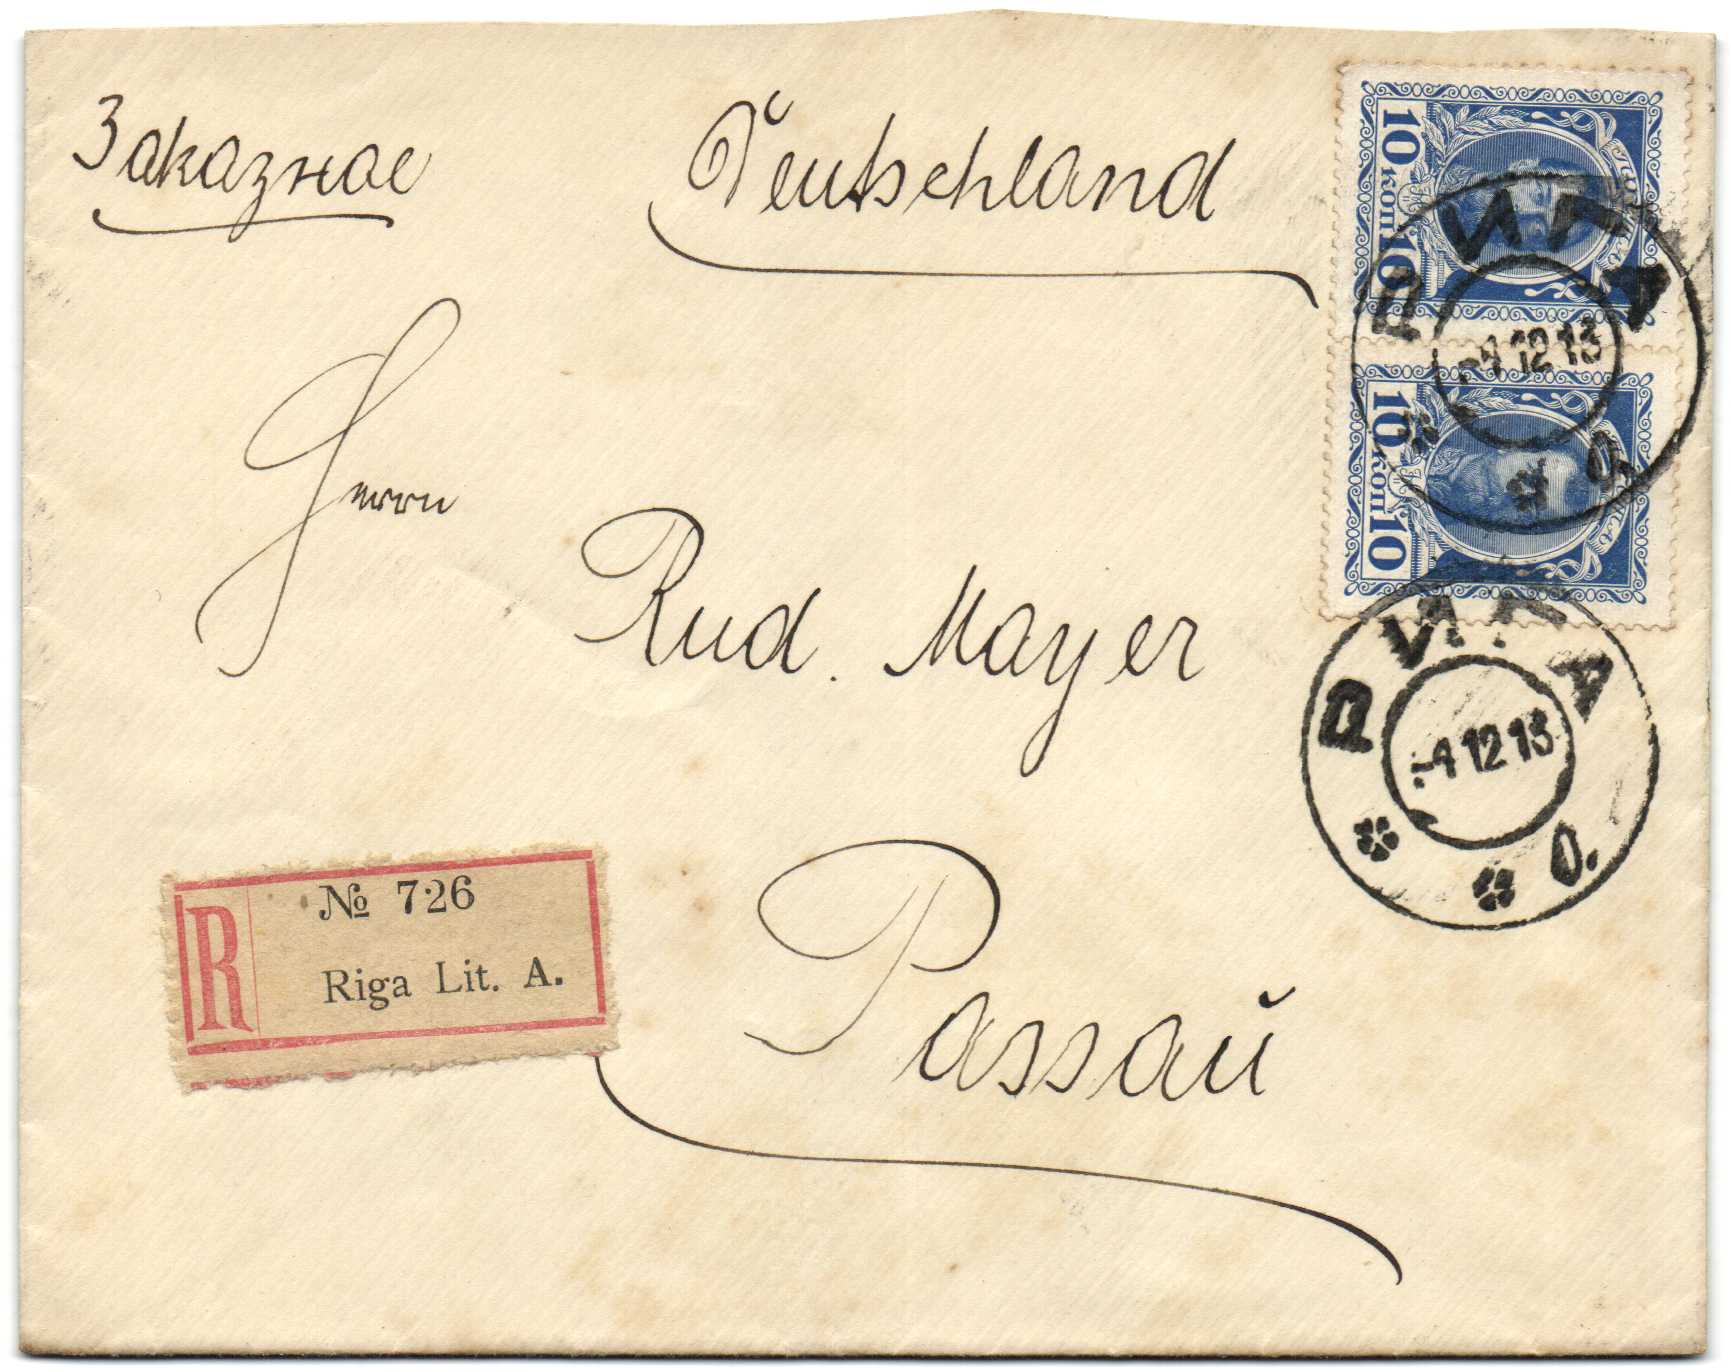 Заказное
Deutschland
Herrn
Rud. Mayer
Passaŭ
№ 726
R
Riga Lit. A.
10 коп 10
10 коп 10
РИГА
-4 12 13
О.
РИГА
-4 12 13
О.